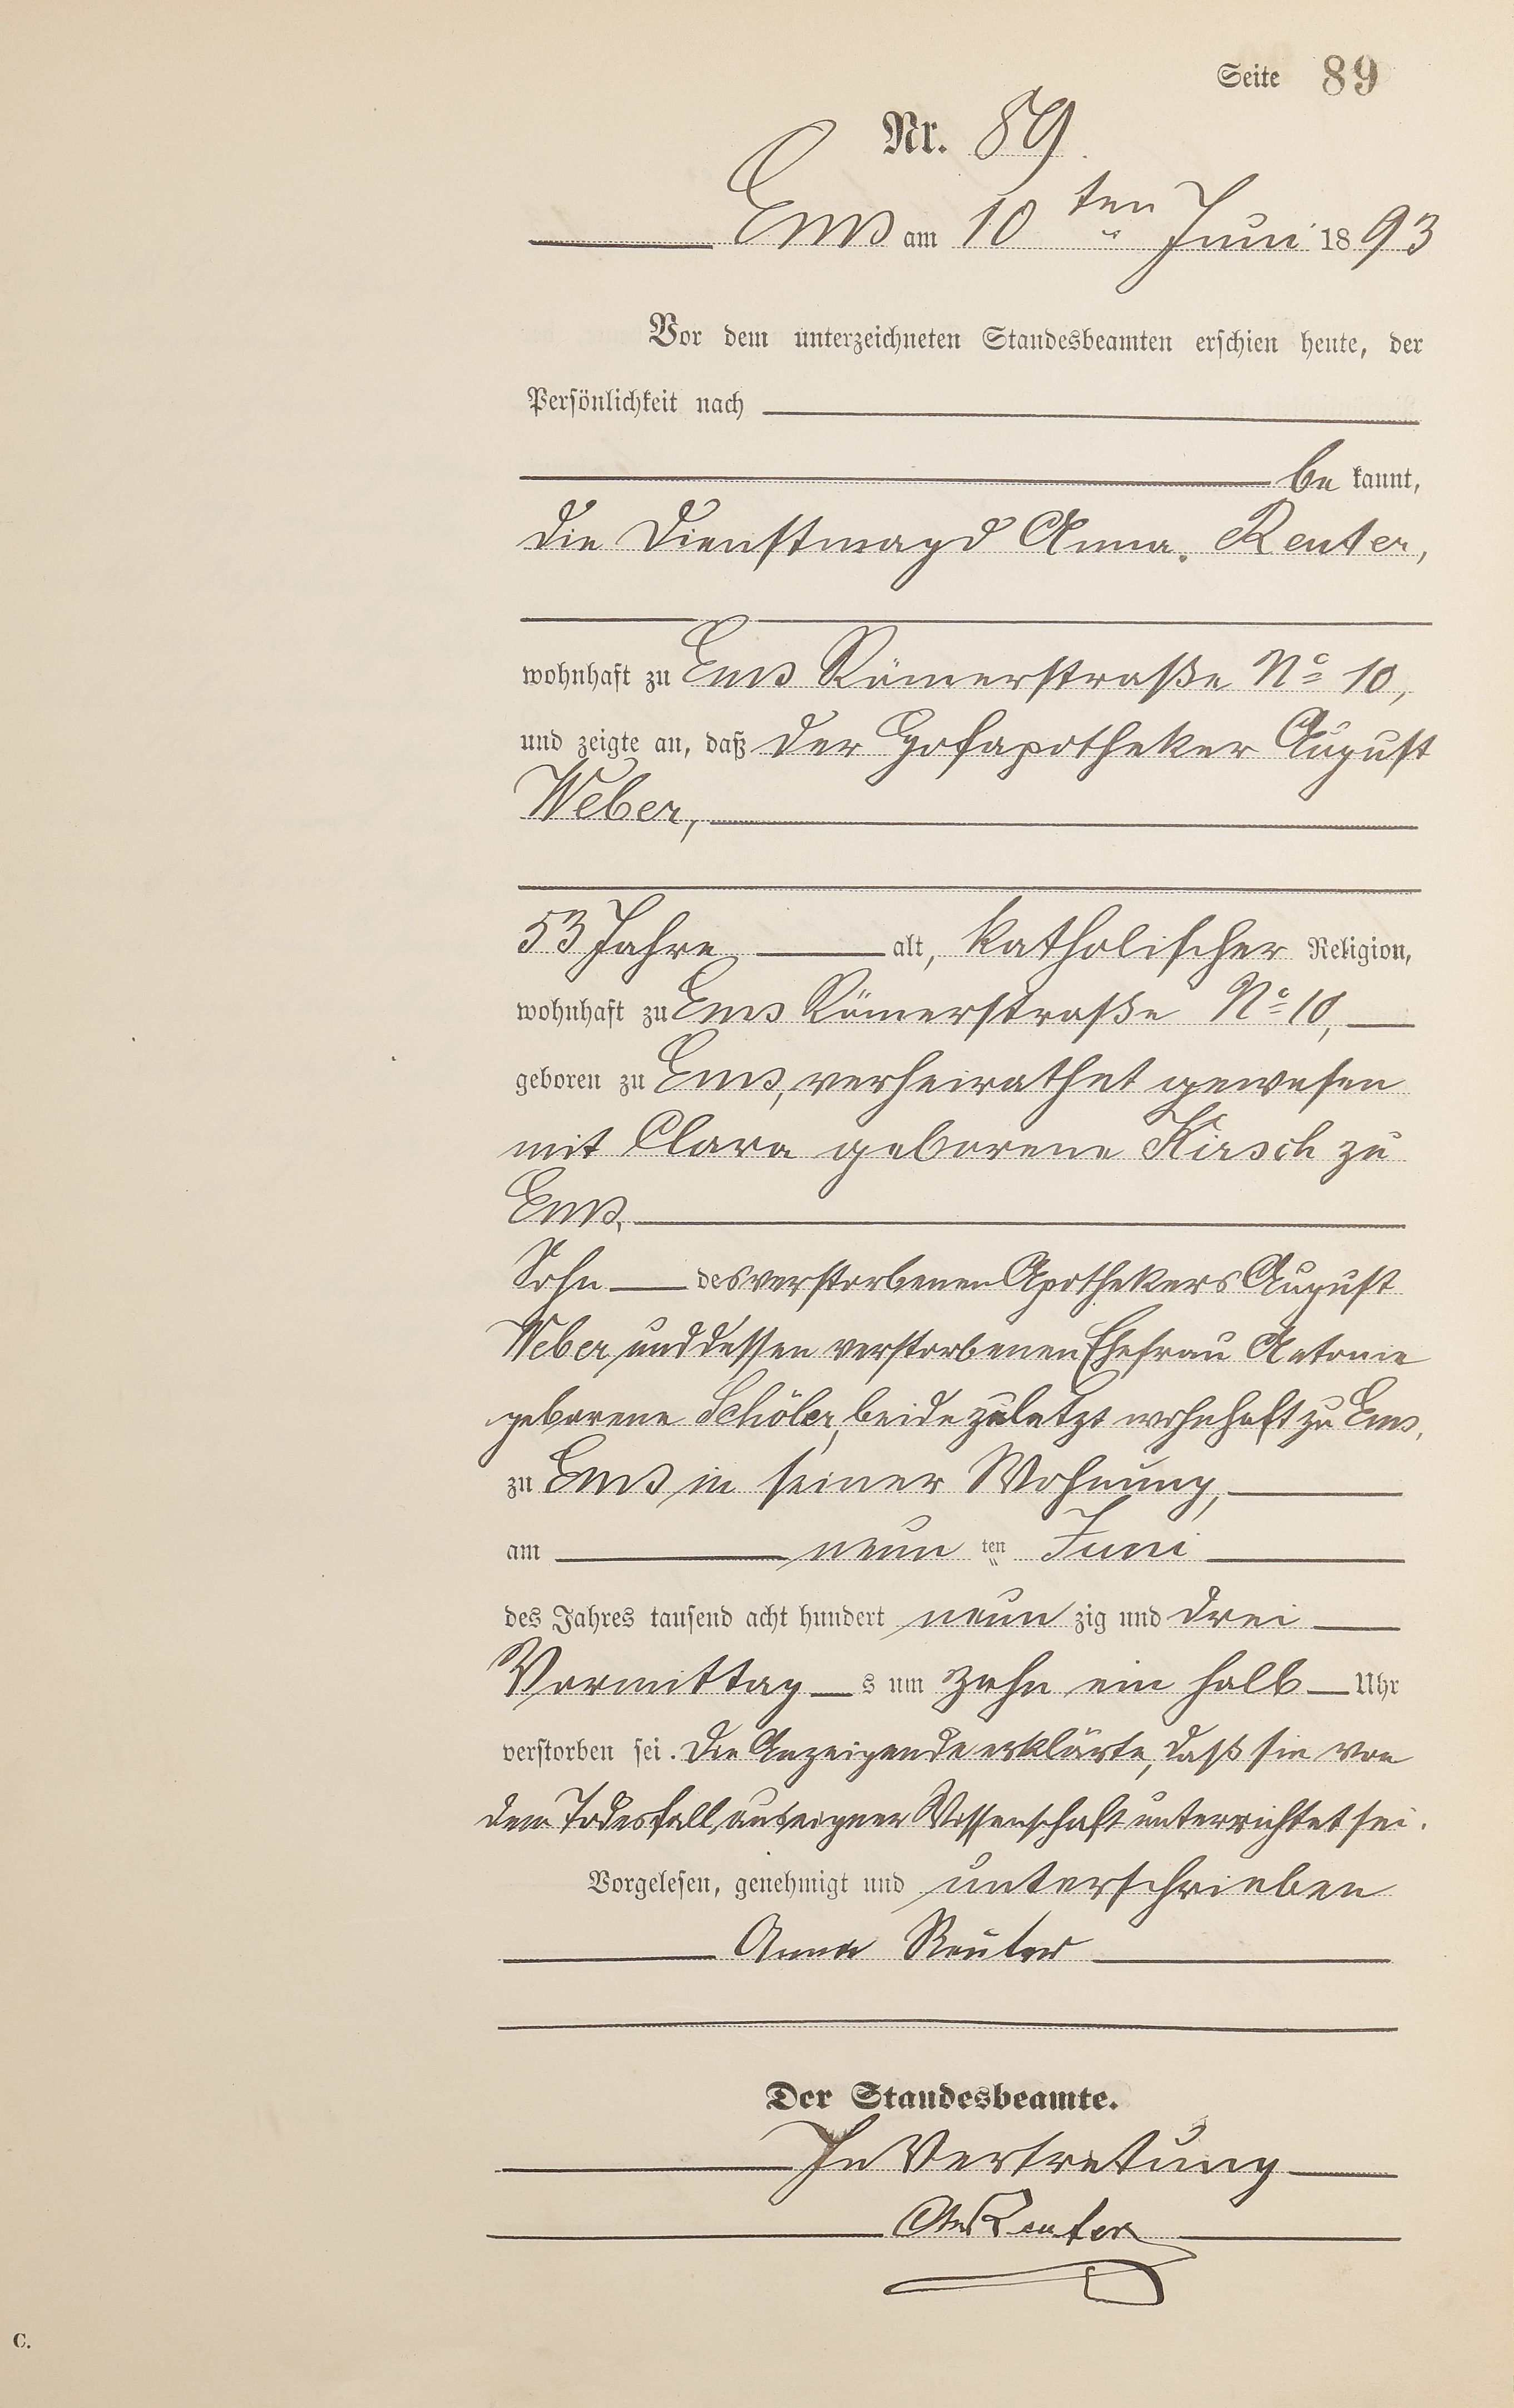 Seite 89
Nr. 89.
Ems am 10 ten Juni 1893
Vor dem unterzeichneten Standesbeamten erschien heute, der
Persönlichkeit nach
be kannt,
die Dienstmagd Anna Reuter,
wohnhaft zu Ems Römerstraße No 10,
und zeigte an, daß der Hofapotheker August
Weber,
53 Jahre alt, katholischer Religion,
wohnhaft zu Ems Römerstraße No 10,
geboren zu Ems, verheirathet gewesen
mit Clara geborene Kirsch zu
Ems,
Sohn des verstorbenen Apothekers August
Weber und dessen verstorbenen Ehefrau Antonie
geborene Schöler, beide zuletzt wohnhaft zu Ems,
zu Ems in seiner Wohnung,
am neun ten Juni
des Jahres tausend acht hundert neun zig und drei
Vormittag s um zehn ein halb Uhr
verstorben sei. Die Anzeigende erklärte, daß sie von
dem Todesfall aus eigner Wissenschaft unterrichtet sei.
Vorgelesen, genehmigt und unterschrieben
Anna Reuter
Der Standesbeamte.
In Vertretung
Reuter
C.